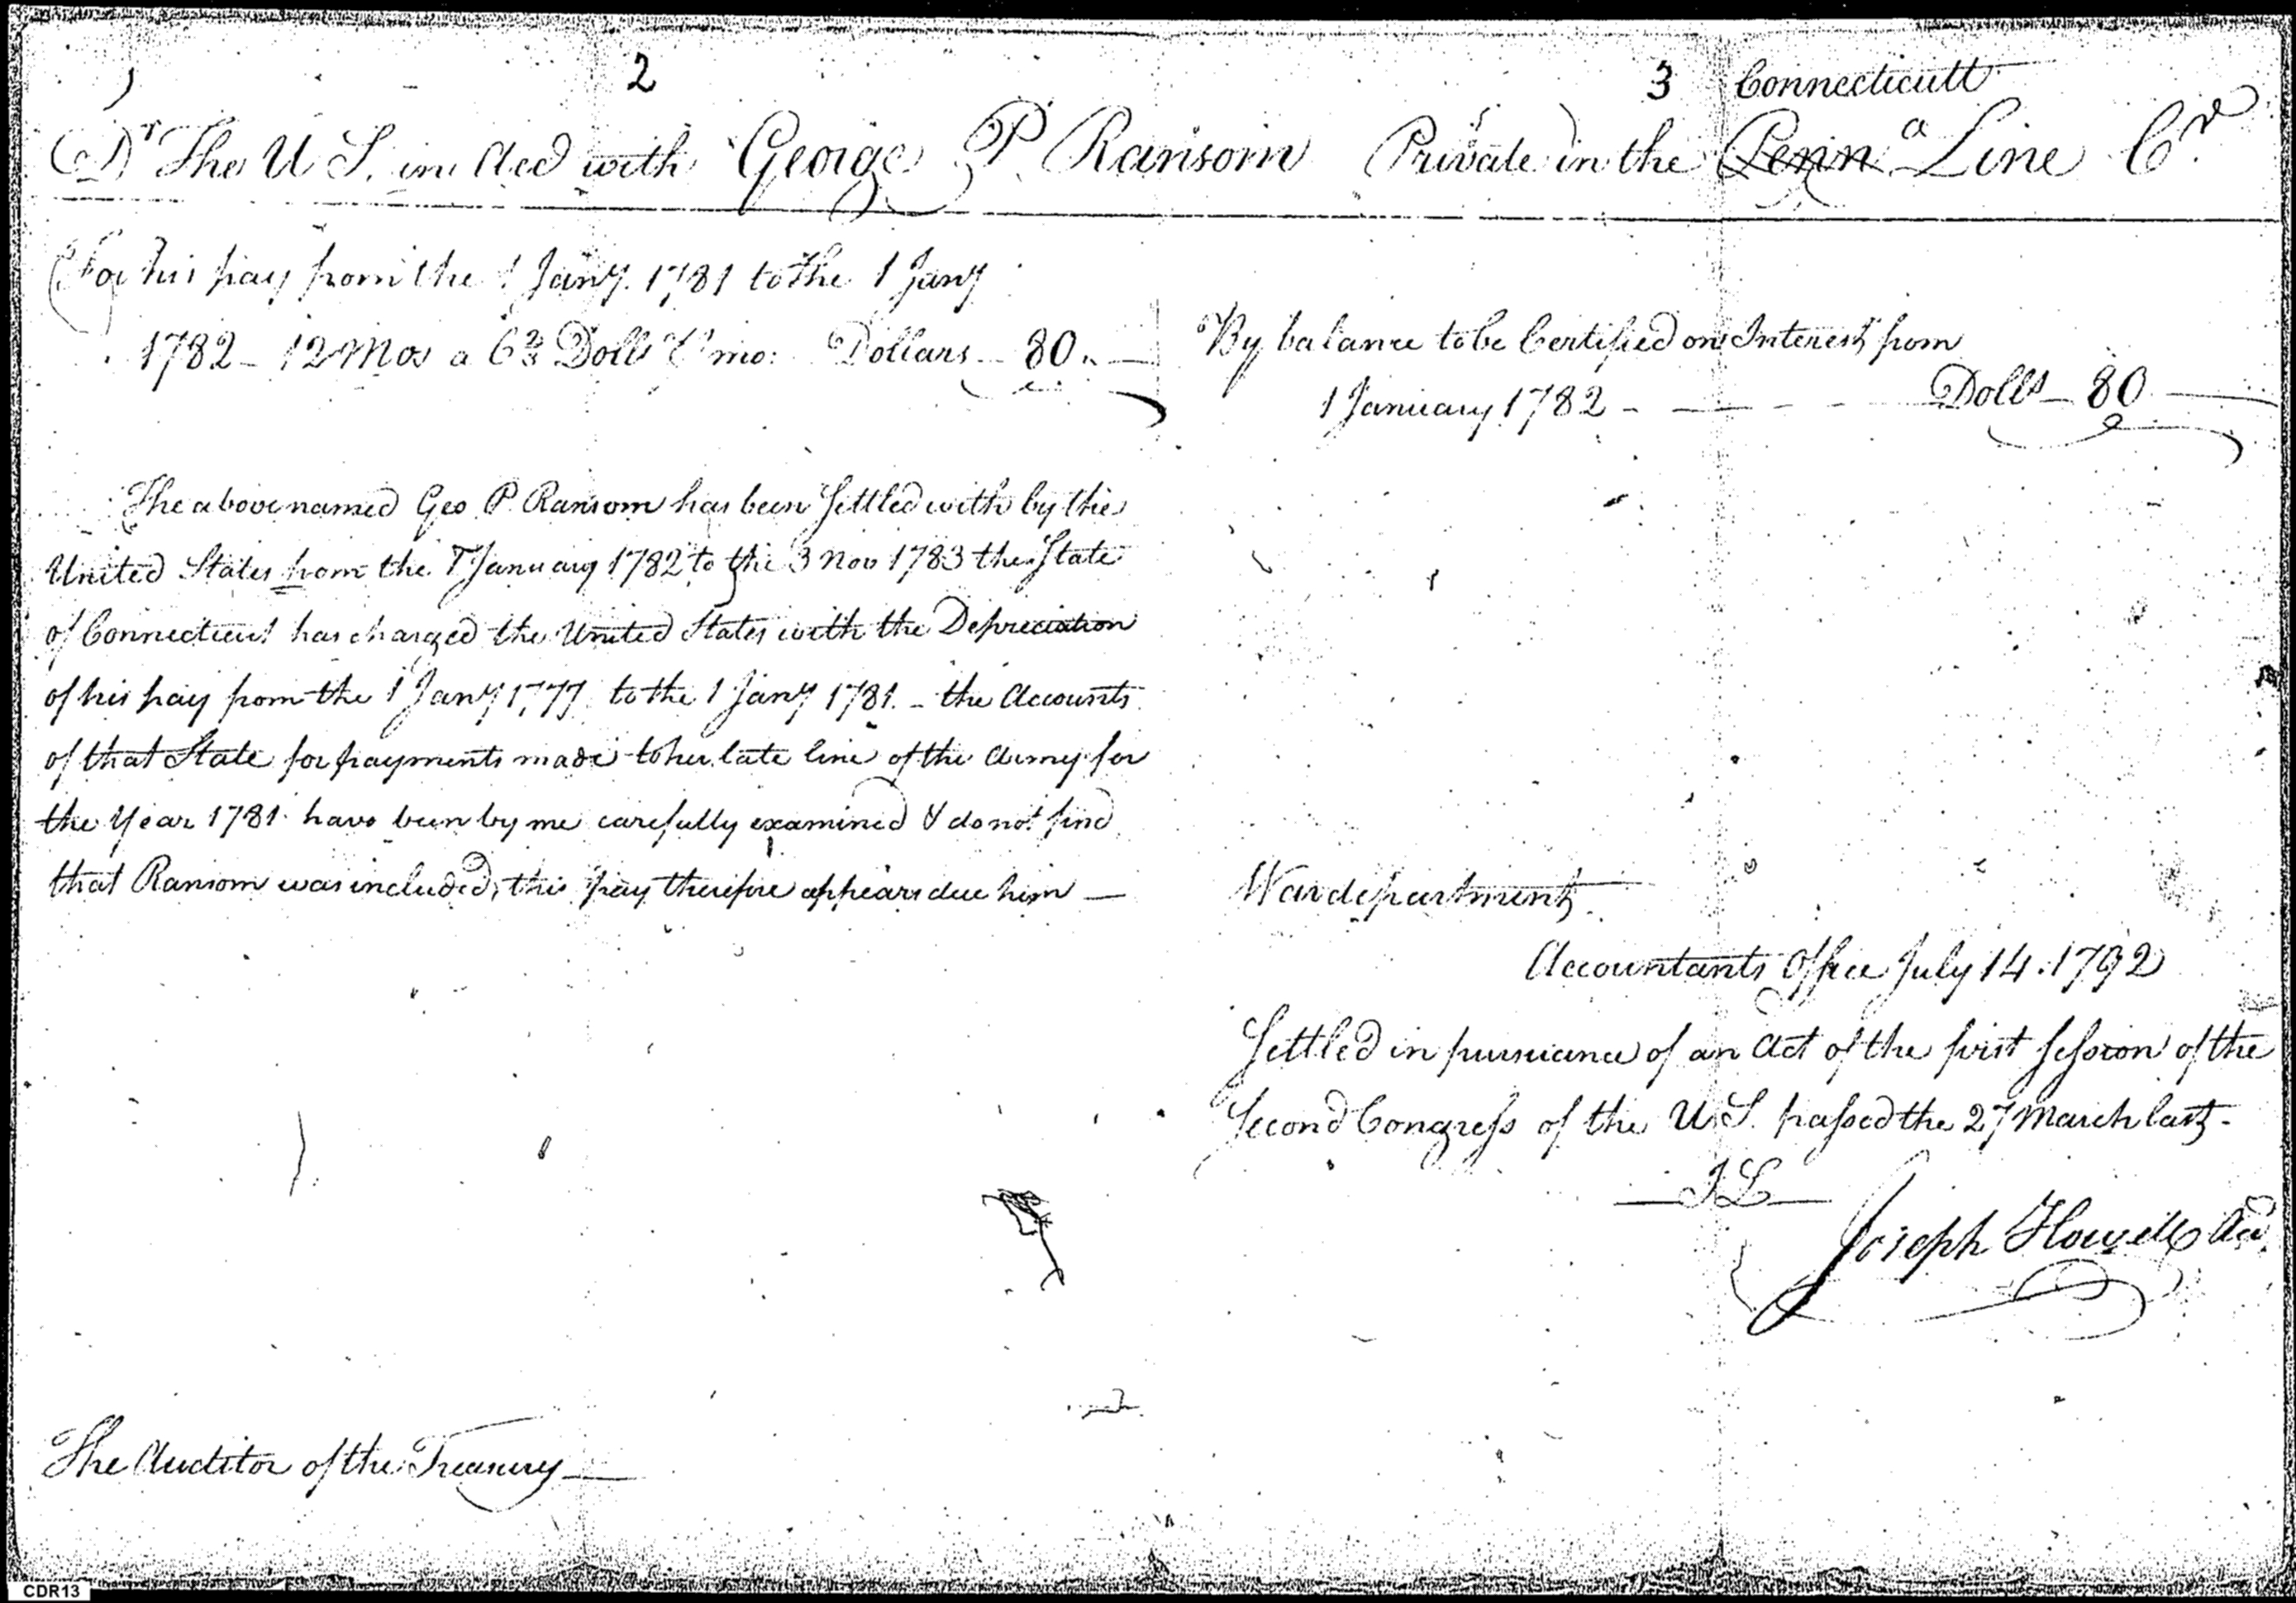 2
3 Connecticutt
Dr The U S. in Acct with George P Ransom Private in the Penna Line Cr
For his pay from the 1 Jany. 1781 to the 1 Jany
1782 - 12 Mos a 6 2/3 Dolls mo: Dollars - 80. -
By balance to be Certified on Interest from
1 January 1782 - - - - Dolls - 80 -
The above named Geo P. Ransom has been Settled with by the
United States from the 1 January 1782 to the 3 Nov 1783 the State
of Connecticut has charged the United States with the Depreciation
of his pay from the 1 Jany 1777 to the 1 Jany 1781. - the Accounts
of that State for payments made to her late line of the Army for
the Year 1781 have been by me carefully examined & do not find
that Ransom was included, this pay therefore appears due him —
War department
Accountants Office July 14. 1792
Settled in pursuance of an Act of the first Session of the
Second Congress of the U.S. passed the 27 March last -
Joseph Howell
The Auditor of the Treasury —
CDR13